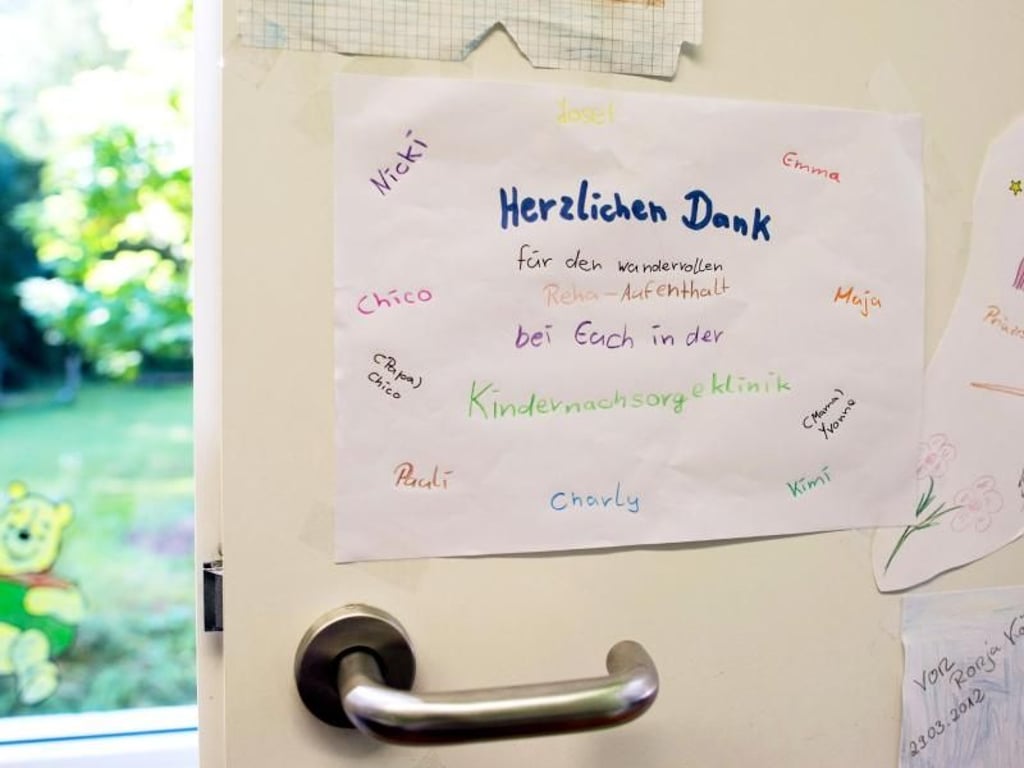 Josef
Nicki
Emma
Herzlichen Dank
für den wundervollen
Reha-Aufenthalt
Chico
Maja
bei Euch in der
(Papa)
Chico
Kindernachsorgeklinik
(Mama)
Yvonne
Pauli
Charly
Kimi
von
Ronja
29.03.2012